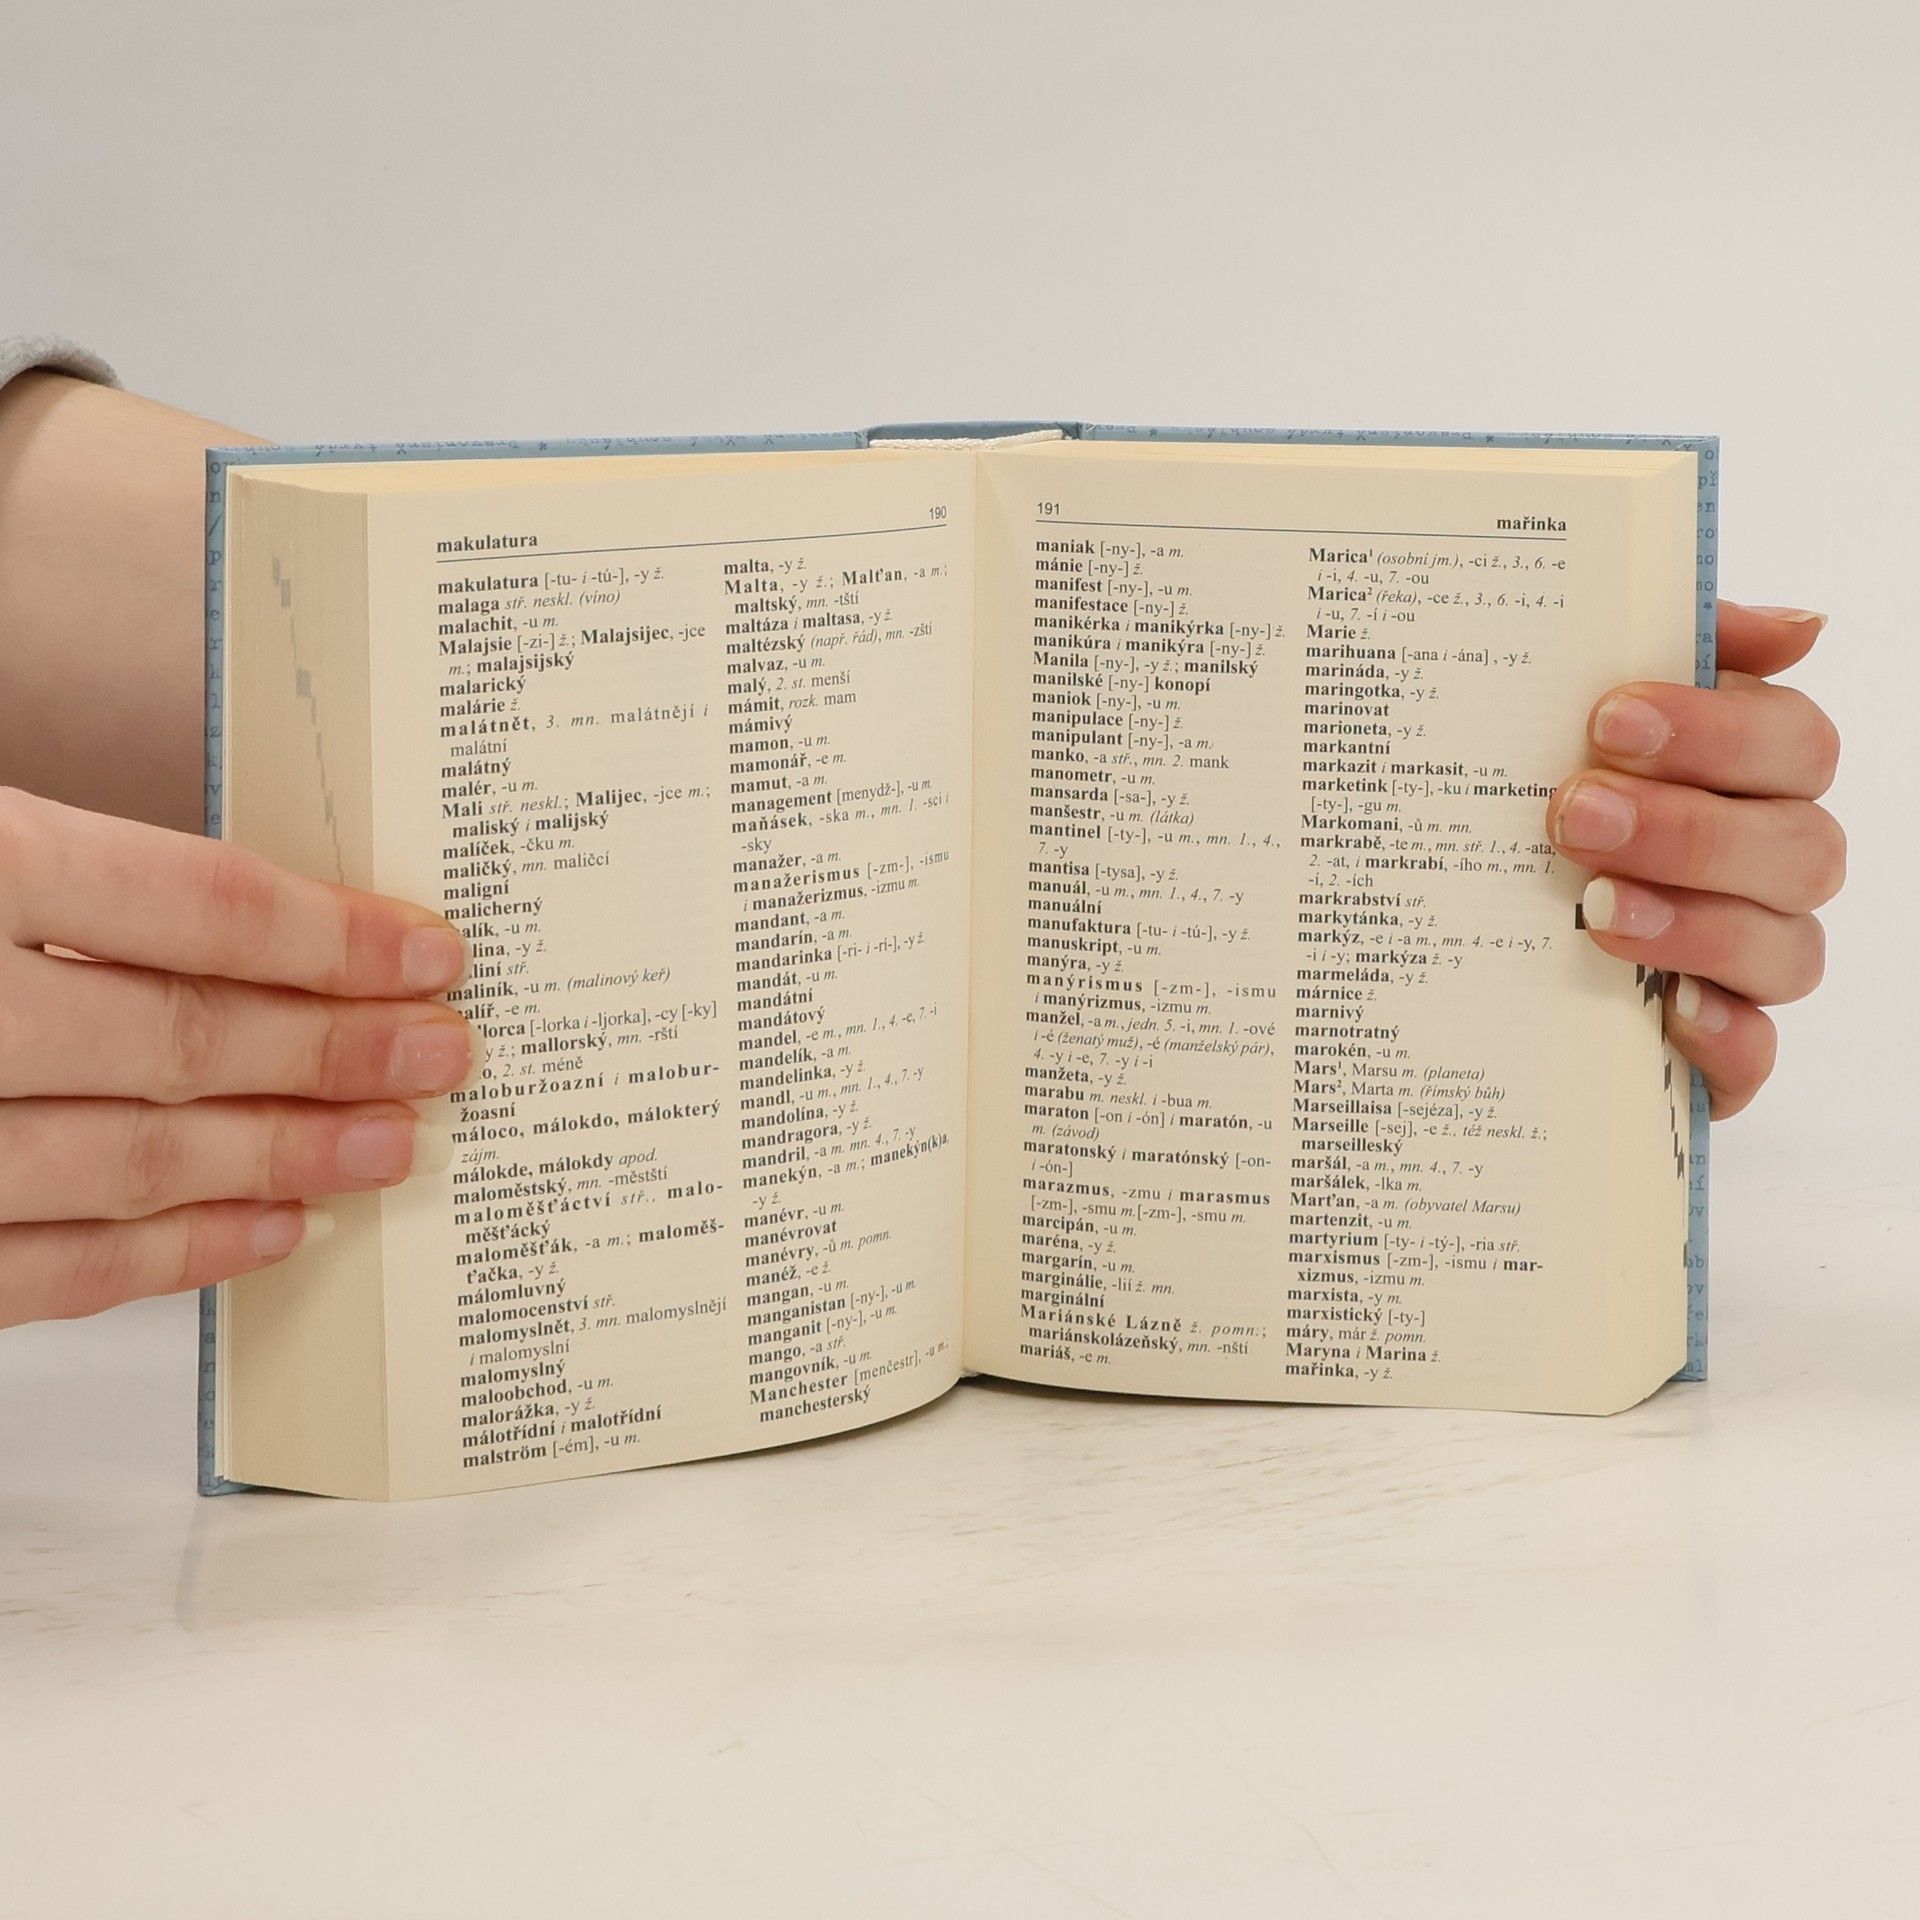 190
makulatura
makulatura [-tu- i -tú-], -y ž.
malaga stř. neskl. (víno)
malachit, -u m.
Malajsie [-zi-] ž.; Malajsijec, -jce
m.; malajsijský
malarický
malárie ž.
malátnět, 3. mn. malátnějí i
malátní
malátný
malér, -u m.
Mali stř. neskl.; Malijec, -jce m.;
maliský i malijský
malíček, -čku m.
maličký, mn. maličcí
maligní
malicherný
alík, -u m.
lina, -y ž.
liní stř.
maliník, -u m. (malinový keř)
alíř, -e m.
lorca [-lorka i -ljorka], -cy [-ky]
y ž.; mallorský, mn. -rští
o, 2. st. méně
maloburžoazní i malobur-
žoasní
máloco, málokdo, málokterý
zájm.
málokde, málokdy apod.
maloměstský, mn. -městští
maloměšťáctví stř., malo-
měšťácký
maloměšťák, -a m.; maloměš-
ťačka, -y ž.
málomluvný
malomocenství stř.
malomyslnět, 3. mn. malomyslnějí
i malomyslní
malomyslný
maloobchod, -u m.
malorážka, -y ž.
málotřídní i malotřídní
malström [-ém], -u m.
malta, -y ž.
Malta, -y ž.; Malťan, -a m.;
maltský, mn. -tští
maltáza i maltasa, -y ž.
maltézský (např. řád), mn. -zští
malvaz, -u m.
malý, 2. st. menší
mámit, rozk. mam
mámivý
mamon, -u m.
mamonář, -e m.
mamut, -a m.
management [menydž-], -u m.
maňásek, -ska m., mn. 1. -sci i
-sky
manažer, -a m.
manažerismus [-zm-], -ismu
i manažerizmus, -izmu m.
mandant, -a m.
mandarín, -a m.
mandarinka [-ri- i -rí-], -y ž.
mandát, -u m.
mandátní
mandátový
mandel, -e m., mn. 1., 4. -e, 7. -i
mandelík, -a m.
mandelinka, -y ž.
mandl, -u m., mn. 1., 4., 7. -y
mandolína, -y ž.
mandragora, -y ž.
mandril, -a m. mn. 4., 7. -y
manekýn, -a m.; manekýn(k)a,
-y ž.
manévr, -u m.
manévrovat
manévry, -ů m. pomn.
manéž, -e ž.
mangan, -u m.
manganistan [-ny-], -u m.
manganit [-ny-], -u m.
mango, -a stř.
mangovník, -u m.
Manchester [menčestr], -u m.,
manchesterský
191
mařinka
maniak [-ny-], -a m.
mánie [-ny-] ž.
manifest [-ny-], -u m.
manifestace [-ny-] ž.
manikérka i manikýrka [-ny-] ž.
manikúra i manikýra [-ny-] ž.
Manila [-ny-], -y ž.; manilský
manilské [-ny-] konopí
maniok [-ny-], -u m.
manipulace [-ny-] ž.
manipulant [-ny-], -a m.
manko, -a stř., mn. 2. mank
manometr, -u m.
mansarda [-sa-], -y ž.
manšestr, -u m. (látka)
mantinel [-ty-], -u m., mn. 1., 4.,
7. -y
mantisa [-tysa], -y ž.
manuál, -u m., mn. 1., 4., 7. -y
manuální
manufaktura [-tu- i -tú-], -y ž.
manuskript, -u m.
manýra, -y ž.
manýrismus [-zm-], -ismu
i manýrizmus, -izmu m.
manžel, -a m., jedn. 5. -i, mn. 1. -ové
i -é (ženatý muž), -é (manželský pár),
4. -y i -e, 7. -y i -i
manžeta, -y ž.
marabu m. neskl. i -bua m.
maraton [-on i -ón] i maratón, -u
m. (závod)
maratonský i maratónský [-on-
i -ón-]
marazmus, -zmu i marasmus
[-zm-], -smu m.[-zm-], -smu m.
marcipán, -u m.
maréna, -y ž.
margarín, -u m.
marginálie, -lií ž. mn.
marginální
Mariánské Lázně ž. pomn.;
mariánskolázeňský, mn. -nští
mariáš, -e m.
Marica¹ (osobní jm.), -ci ž., 3., 6. -e
i -i, 4. -u, 7. -ou
Marica² (řeka), -ce ž., 3., 6. -i, 4. -i
i -u, 7. -í i -ou
Marie ž.
marihuana [-ana i -ána] , -y ž.
marináda, -y ž.
maringotka, -y ž.
marinovat
marioneta, -y ž.
markantní
markazit i markasit, -u m.
marketink [-ty-], -ku i marketing
[-ty-], -gu m.
Markomani, -ů m. mn.
markrabě, -te m., mn. stř. 1., 4. -ata,
2. -at, i markrabí, -ího m., mn. 1.
-í, 2. -ích
markrabství stř.
markytánka, -y ž.
markýz, -e i -a m., mn. 4. -e i -y, 7.
-i i -y; markýza ž. -y
marmeláda, -y ž.
márnice ž.
marnivý
marnotratný
marokén, -u m.
Mars¹, Marsu m. (planeta)
Mars², Marta m. (římský bůh)
Marseillaisa [-sejéza], -y ž.
Marseille [-sej], -e ž., též neskl. ž.;
marseilleský
maršál, -a m., mn. 4., 7. -y
maršálek, -lka m.
Marťan, -a m. (obyvatel Marsu)
martenzit, -u m.
martyrium [-ty- i -tý-], -ria stř.
marxismus [-zm-], -ismu i mar-
xizmus, -izmu m.
marxista, -y m.
marxistický [-ty-]
máry, már ž. pomn.
Maryna i Marina ž.
mařinka, -y ž.